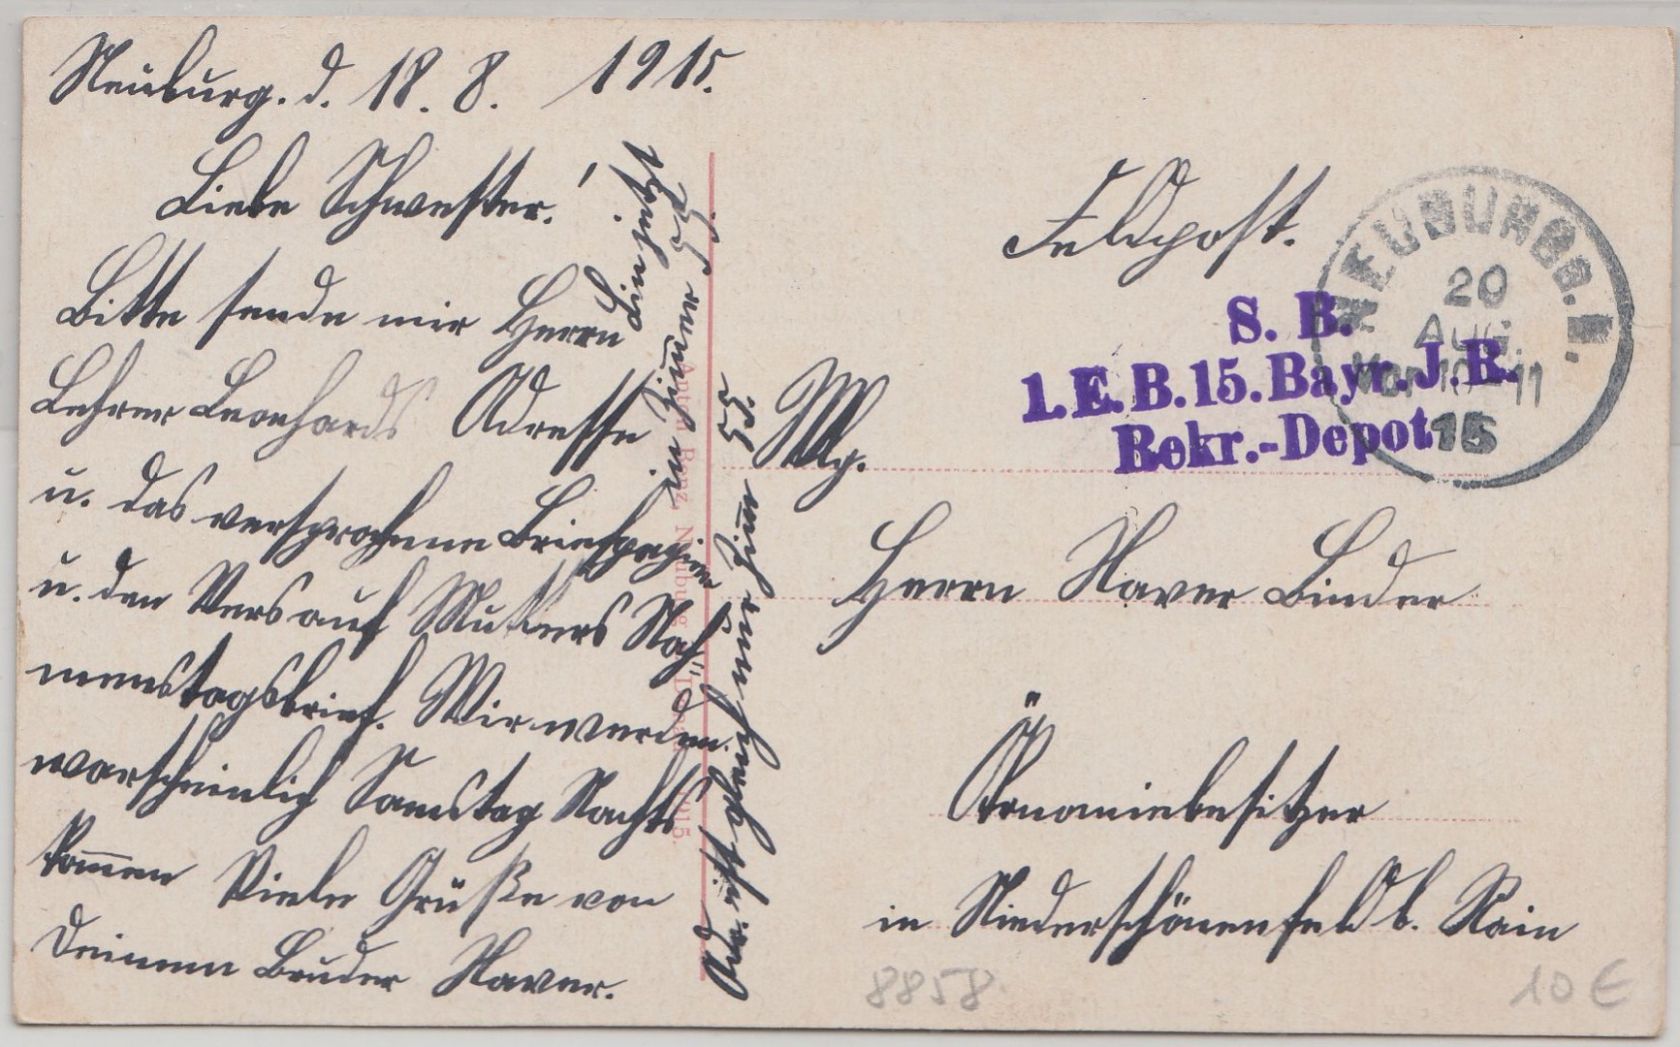 Neuburg. d. 18. 8. 1915.
Liebe Schwester!
Bitte sende mir Herrn
Lehrer Leonhards Adresse
u. das versprochene Briefpapier
u. den Vers auf Mutters Nach
menstagsbrief. Wir werden
warscheinlich Samstag Nachts
kommen Viele Grüße von
Deinem Bruder Xaver.
Bin jetzt
in Zimmer 55.
Adr. ist genau nur Zimm 55
Feldpost.
S. B.
1. E. B. 15. Bayr. J. R.
Rekr.-Depot
NEUBURG a. D.
20
AUG.
Vor. 10-11
15
An
Herrn Xaver Binder
Ökonomiebesitzer
in Niederschönenfeld b. Rain
8858
10 €